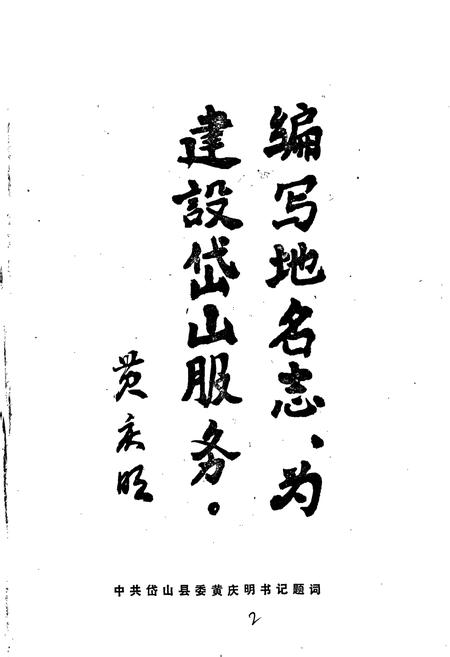 编写地名志、为
建設岱山服务。
黄庆明
中共岱山县委黄庆明书记题词
2